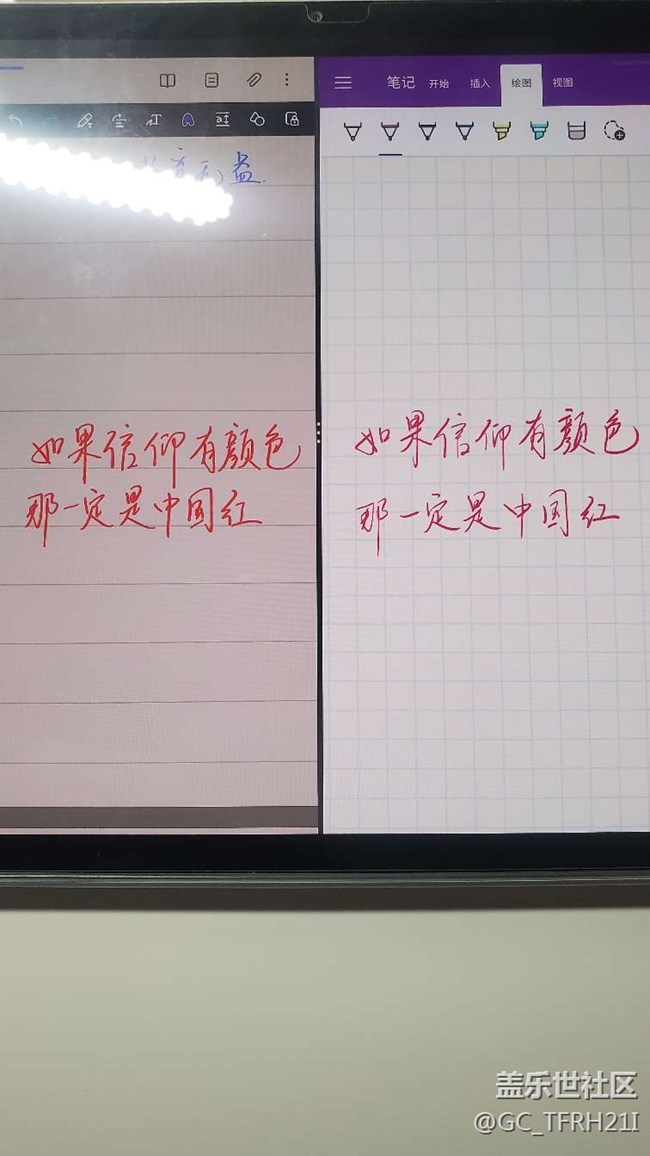 笔记 开始 插入 绘图 视图
益
如果信仰有颜色
那一定是中国红
如果信仰有颜色
那一定是中国红
盖乐世社区
@GC_TFRH21I